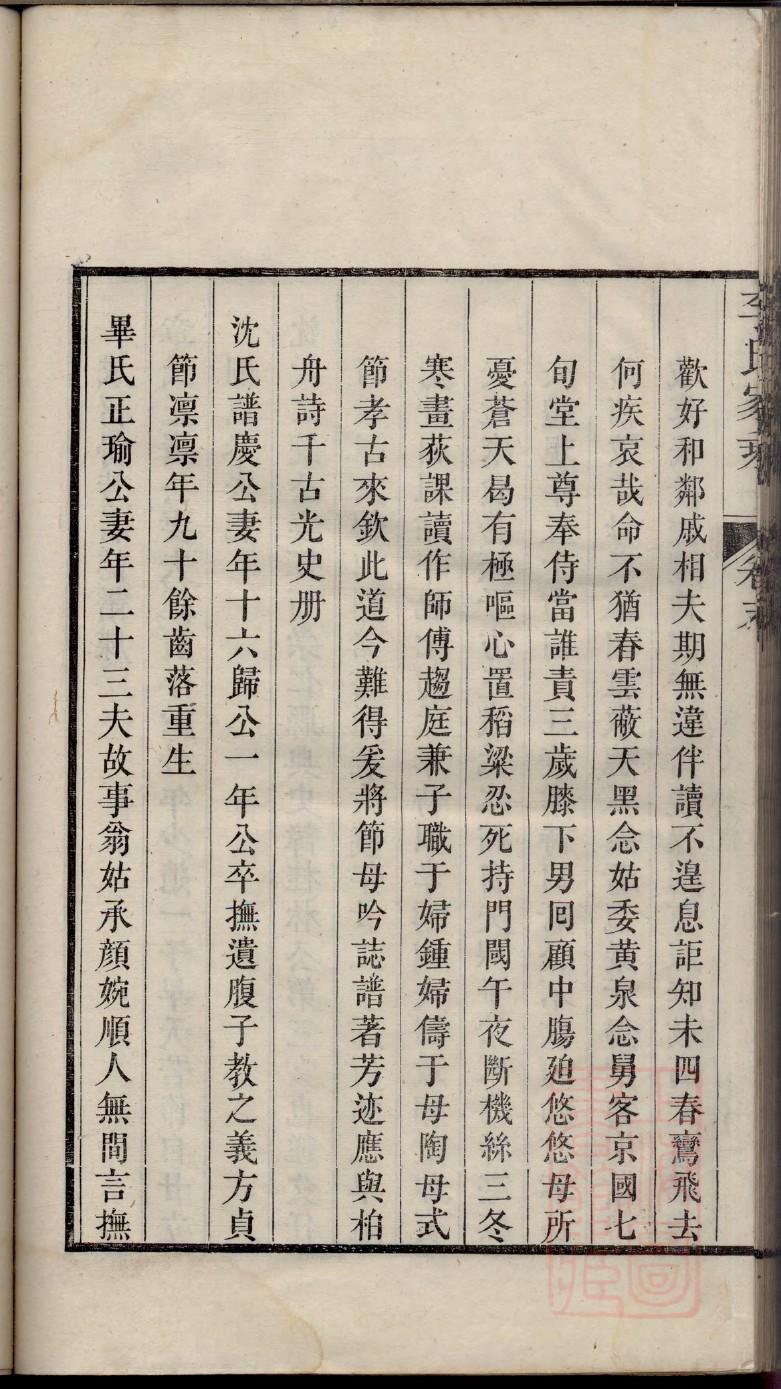 李氏家乘 卷末
歡好和鄰戚相夫期無違伴讀不遑息詎知未四春鸞飛去
何疾哀哉命不猶春雲蔽天黑念姑委黄泉念舅客京國七
旬堂上尊奉侍當誰責三歲膝下男囘顧中腸廹悠悠母所
憂蒼天曷有極嘔心置稻粱忍死持門閾午夜斷機絲三冬
寒畫荻課讀作師傅趨庭兼子職于婦鍾婦儔于母陶母式
節孝古來欽此道今難得爰將節母吟誌譜著芳迹應與柏
舟詩千古光史册
沈氏譜慶公妻年十六歸公一年公卒撫遺腹子教之義方貞
節凛凛年九十餘齒落重生
畢氏正瑜公妻年二十三夫故事翁姑承顔婉順人無間言撫